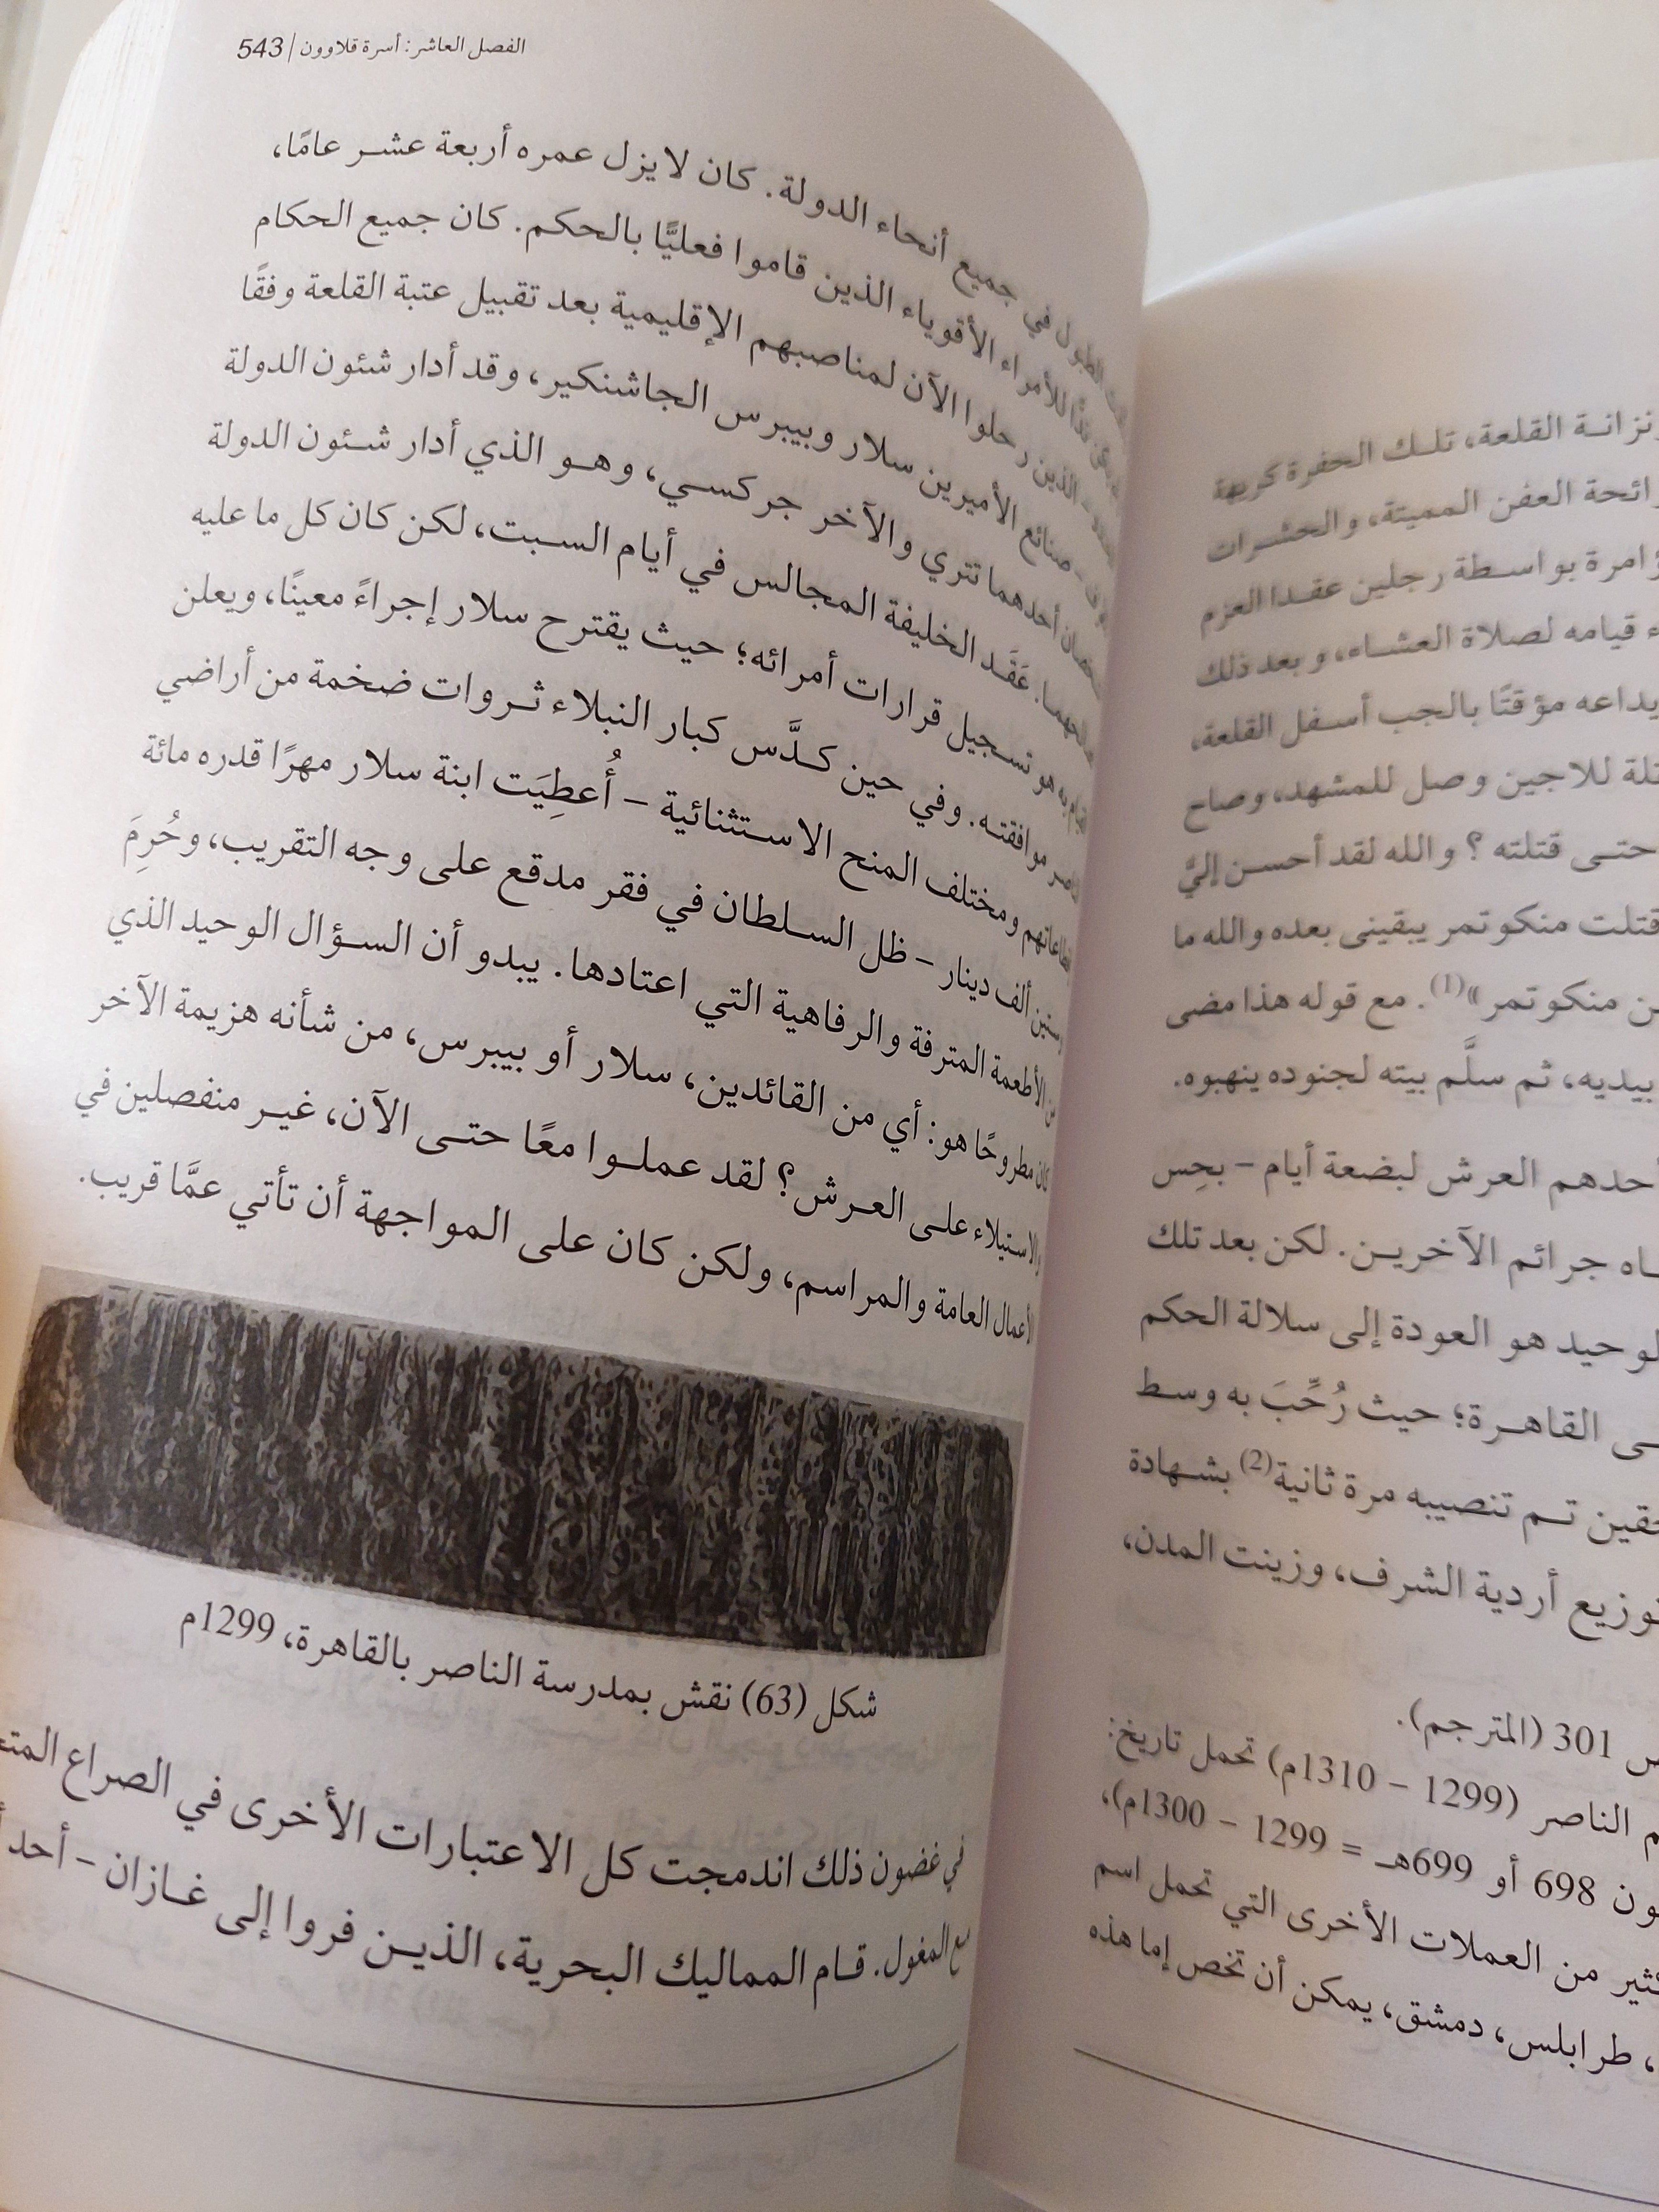 نزانة القلعة، تلك الحفرة كريهة
رائحة العفن المميتة، والحشرات
ؤامرة بواسطة رجلين عقدا العزم
ء قيامه لصلاة العشاء، وبعد ذلك
يداعه مؤقتًا بالجب أسفل القلعة،
تلة للاجين وصل للمشهد، وصاح
حتى قتلته ؟ والله لقد أحسن إليَّ
قتلت منكوتمر يبقينى بعده والله ما
ن منكوتمر»(1). مع قوله هذا مضى
بيديه، ثم سلَّم بيته لجنوده ينهبوه.
أحدهم العرش لبضعة أيام – بحِس
ـاه جرائم الآخرين. لكن بعد تلك
لوحيد هو العودة إلى سلالة الحكم
ـى القاهرة؛ حيث رُحِّبَ به وسط
حقين تم تنصيبه مرة ثانية(2) بشهادة
توزيع أردية الشرف، وزينت المدن،
ص 301 (المترجم).
م الناصر (1299 – 1310م) تحمل تاريخ:
ون 698 أو 699هـ = 1299 – 1300م)،
كثير من العملات الأخرى التي تحمل اسم
، طرابلس، دمشق، يمكن أن تخص إما هذه
الفصل العاشر: أسرة قلاوون | 543
الطبول في جميع أنحاء الدولة. كان لا يزل عمره أربعة عشر عامًا،
للأمراء الأقوياء الذين قاموا فعليًّا بالحكم. كان جميع الحكام
الذين رحلوا الآن لمناصبهم الإقليمية بعد تقبيل عتبة القلعة وفقًا
صنائع الأميرين سلار وبيبرس الجاشنكير، وقد أدار شئون الدولة
أحدهما تتري والآخر جركسي، وهو الذي أدار شئون الدولة
عَقَد الخليفة المجالس في أيام السبت، لكن كان كل ما عليه
القيام به هو تسجيل قرارات أمرائه؛ حيث يقترح سلار إجراءً معينًا، ويعلن
الناصر موافقته. وفي حين كدَّس كبار النبلاء ثروات ضخمة من أراضي
إقطاعاتهم ومختلف المنح الاستثنائية – أُعطِيَت ابنة سلار مهرًا قدره مائة
وستين ألف دينار – ظل السلطان في فقر مدقع على وجه التقريب، وحُرِمَ
من الأطعمة المترفة والرفاهية التي اعتادها. يبدو أن السؤال الوحيد الذي
كان مطروحًا هو: أي من القائدين، سلار أو بيبرس، من شأنه هزيمة الآخر
والاستيلاء على العرش؟ لقد عملوا معًا حتى الآن، غير منفصلين في
الأعمال العامة والمراسم، ولكن كان على المواجهة أن تأتي عمَّا قريب.
شكل (63) نقش بمدرسة الناصر بالقاهرة، 1299م
في غضون ذلك اندمجت كل الاعتبارات الأخرى في الصراع
مع المغول. قام المماليك البحرية، الذين فروا إلى غازان – أحد